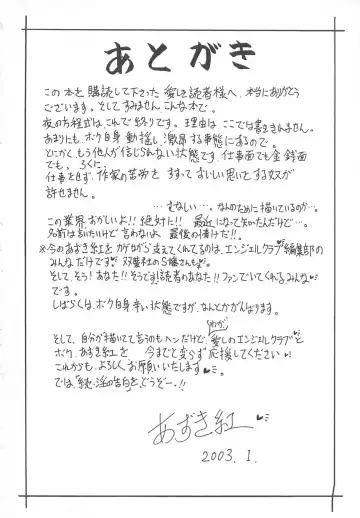 あとがき
この本を購読して下さった愛しき読者様へ、本当にありがとう
ございます。そしてすみません こんな本で。
夜の方程式は、これで終りです。理由は ここでは書ききれません。
あまりにも、ボク自身 動揺し 激昂する事態にあるので。
とにかく、もう他人が信じられない状態です。仕事面でも金銭面
でも。ろくに
仕事もせず、作家の芸術を すすっておいしい思いをする奴が
許せません。
…むなしい…。なんのために描いているのか…。
この業界おかしいよ!! 絶対に!! 最近になって知ったんだけど…。
名前は言いたいけど 言わないよ 最後の情けだ!!。
※今のあずき紅をかげながら支えてくれてるのは、エンジェルクラブ編集部の
みんなだけです 双葉社のS様さんも
そして、そう!あなた!!そうです!読者のあなた!!ファンでいてくれるみんな
です。
しばらくは、ボク自身辛い状態ですが、なんとかがんばります。
そして、自分が描いてて言うのもヘンだけど、我が愛しのエンジェルクラブと
ボク、あずき紅を 今までと変らず応援してください
これからも、よろしくお願いいたします。
では、「続・淫の告白」を、どうぞー!!
あずき紅
2003.1.